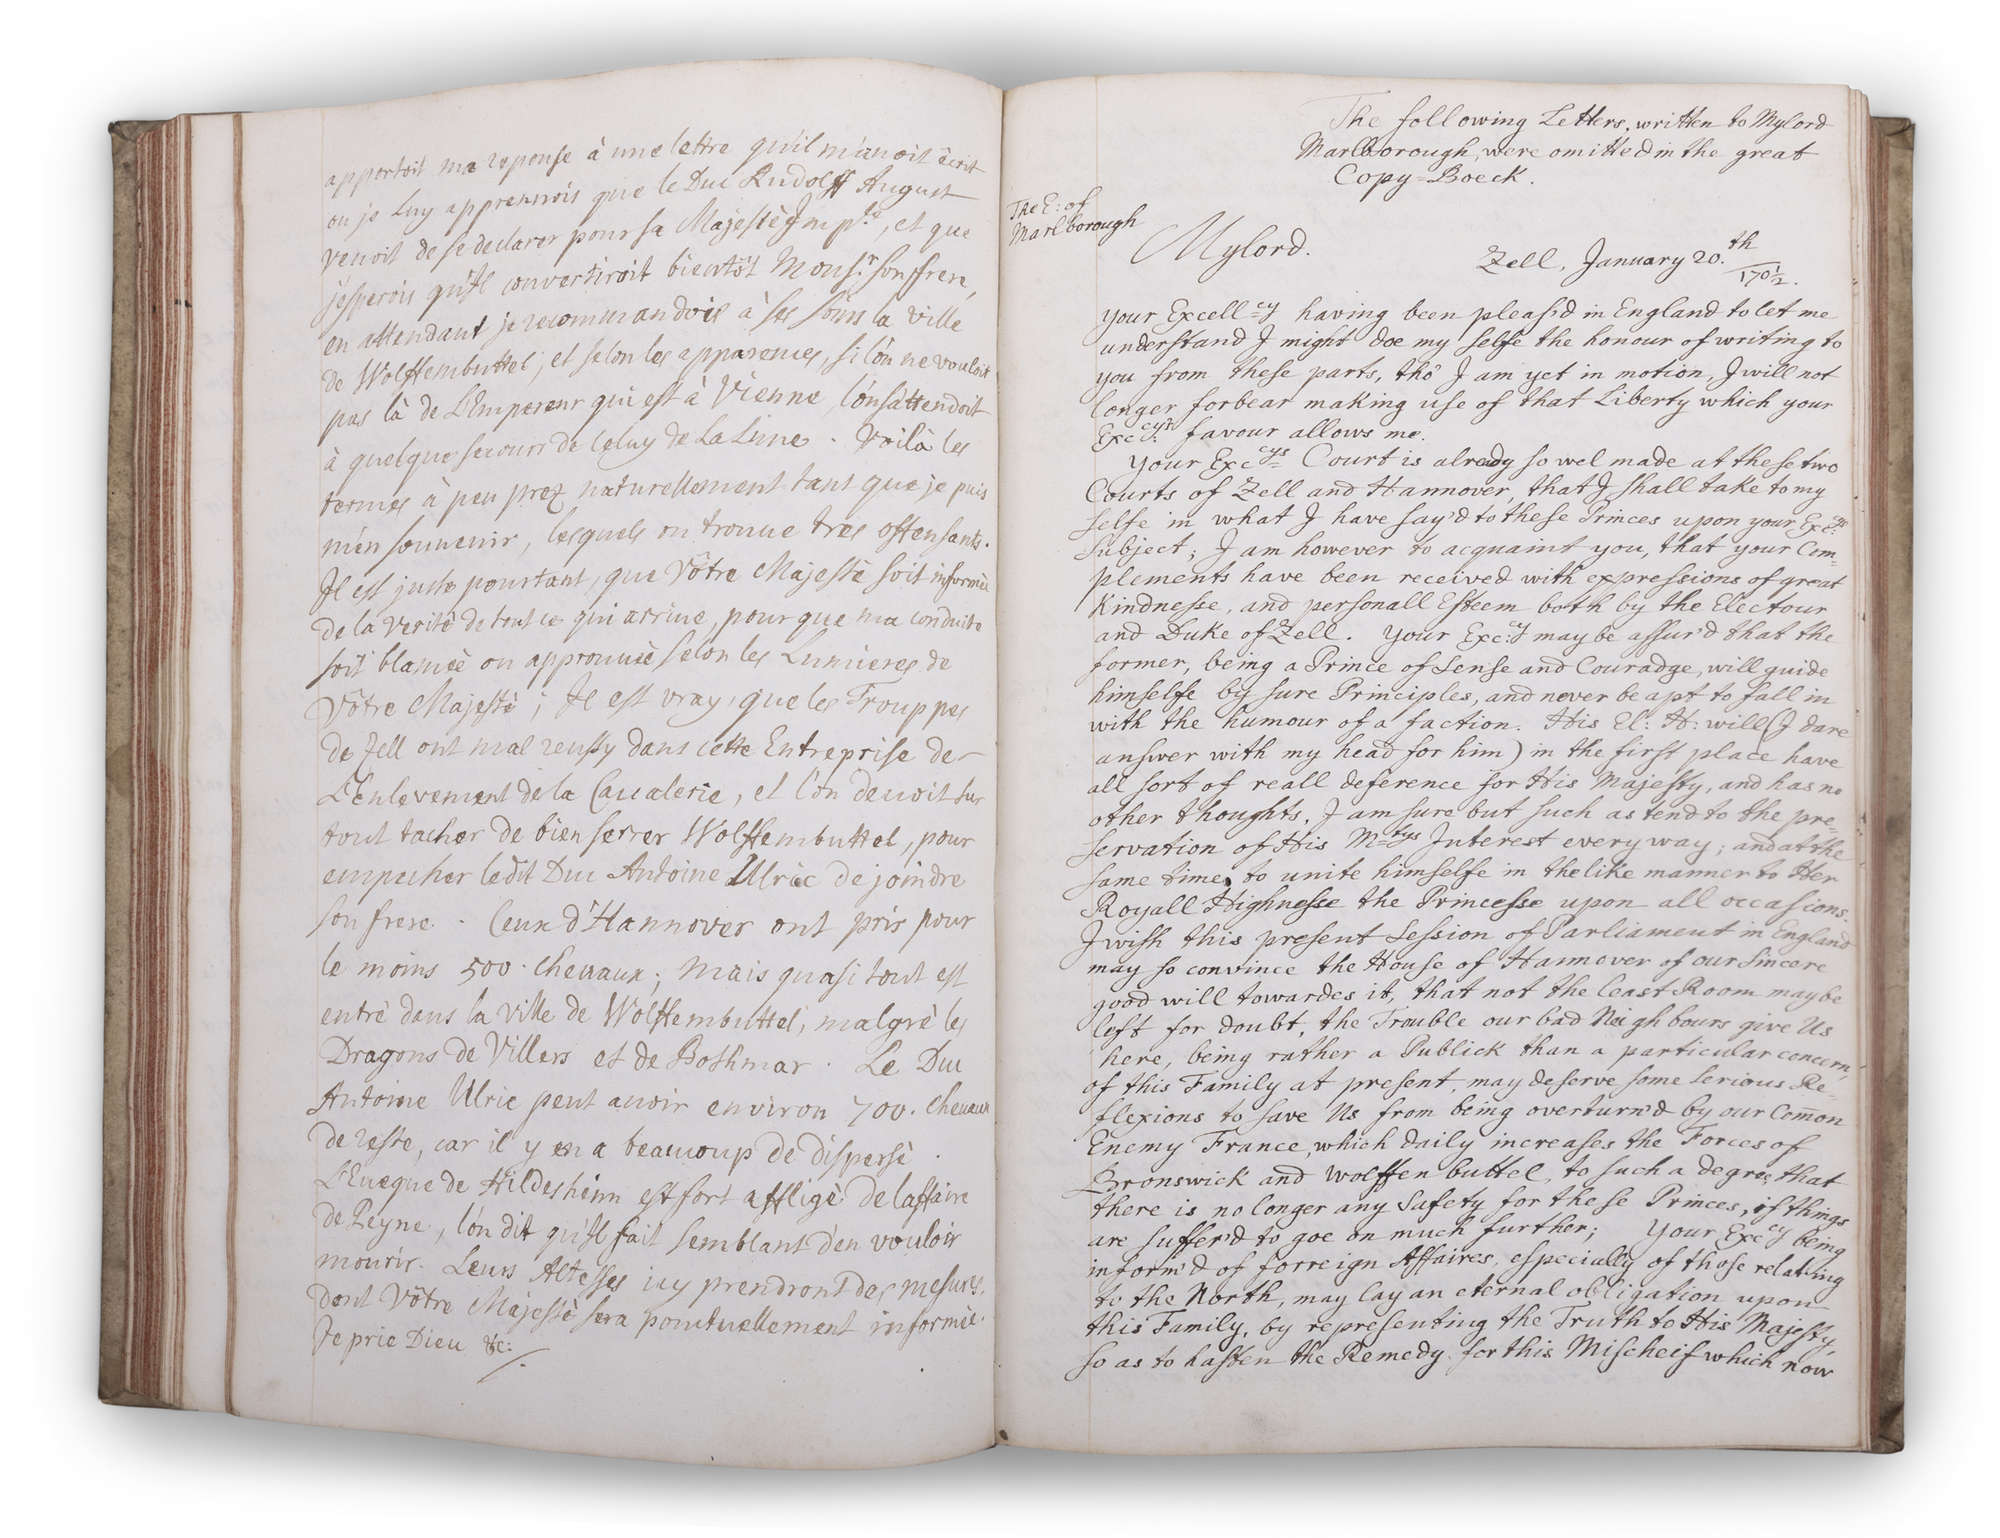 apportoit ma reponse à une lettre qu'il m'avoit écrit
ou je Luy apprennois que le Duc Rudolff August
venoit de se declarer pour sa Majestè Imp.le, et que
j'esperois qu'Il convertiroit bientôt Mons.r son frere,
en attendant je recommandois à ses soins la ville
de Wolffembuttel; et selon les apparences, si l'on ne vouloit
pas là de L'Empereur qui est à Vienne, l'on s'attendoit
à quelque secours de celuy de La Lune. Voilà les
termes à peu prez naturellement tant que je puis
m'en souvenir, lesquels on trouue tres offensants.
Il est juste pourtant, que Vôtre Majestè soit informèe
de la veritè de tout ce qui arriue, pour que ma conduite
soit blamèe ou approuuèe selon les Lumieres de
Vôtre Majestè; Il est vray, que les Trouppes
de Zell ont mal reussy dans cette Entreprise de
L'Enlevement de la Caualerie, et l'on deuoit sur
tout tacher de bien serrer Wolffembuttel, pour
empecher ledit Duc Antoine Ulric de joindre
son frere. Ceux d'Hannover ont pris pour
le moins 500. chevaux; mais quasi tout est
entrè dans la ville de Wolffembuttel, malgrè les
Dragons de Villers et de Bothmar. Le Duc
Antoine Ulric peut auoir environ 700. chevaux
de reste, car il y en a beaucoup de dispersè.
L'Eueque de Hildesheim est fort affligè de l'affaire
de Peyne, l'on dit qu'Il fait semblant d'en vouloir
mourir. Leurs Altesses icy prendront des mesures,
dont Vôtre Majestè sera ponctuellement informèe.
Je prie Dieu &c:
The following Letters, written to Mylord
Marlborough, were omitted in the great
Copy=Boeck.
The E: of
Marlborough
Mylord.
Zell, January 20.th
170½.
Your Excell=cy having been pleas'd in England to let me
understand I might doe my selfe the honour of writing to
you from these parts, tho' I am yet in motion, I will not
longer forbear making use of that Liberty which your
Exc:cys favour allows me.
Your Exc=cys Court is already so wel made at these two
Courts of Zell and Hannover, that I shall take to my
selfe in what I have say'd to these Princes upon your Exc:cys
Subject; I am however to acquaint you, that your Com=
plements have been received with expressions of great
kindnesse, and personall Esteem both by the Electour
and Duke of Zell. Your Exc:cy may be assur'd that the
former, being a Prince of Sense and Couradge, will guide
himselfe by sure Principles, and never be apt to fall in
with the humour of a faction. His El: H: will (I dare
answer with my head for him) in the first place have
all sort of reall deference for His Majesty, and has no
other thoughts, I am sure but such as tend to the pre=
servation of His M=tys Interest every way; and at the
same time, to unite himselfe in the like manner to Her
Royall Highnesse the Princesse upon all occasions.
I wish this present Session of Parliament in England
may so convince the House of Hannover of our Sincere
good will towardes it, that not the least Room may be
left for doubt, the Trouble our bad Neighbours give Us
here, being rather a Publick than a particular concern,
of this Family at present, may deserve some Serious Re=
flexions to save Us from being overturn'd by our Com̄on
Enemy France, which daily increases the Forces of
Bronswick and Wolffenbuttel, to such a degree that
there is no longer any Safety for these Princes, if things
are suffer'd to goe on much further; Your Exc:cy being
inform'd of forreign Affaires, especially of those relating
to the North, may lay an eternal obligation upon
this Family, by representing the Truth to His Majesty,
so as to hasten the Remedy for this Mischeif which now